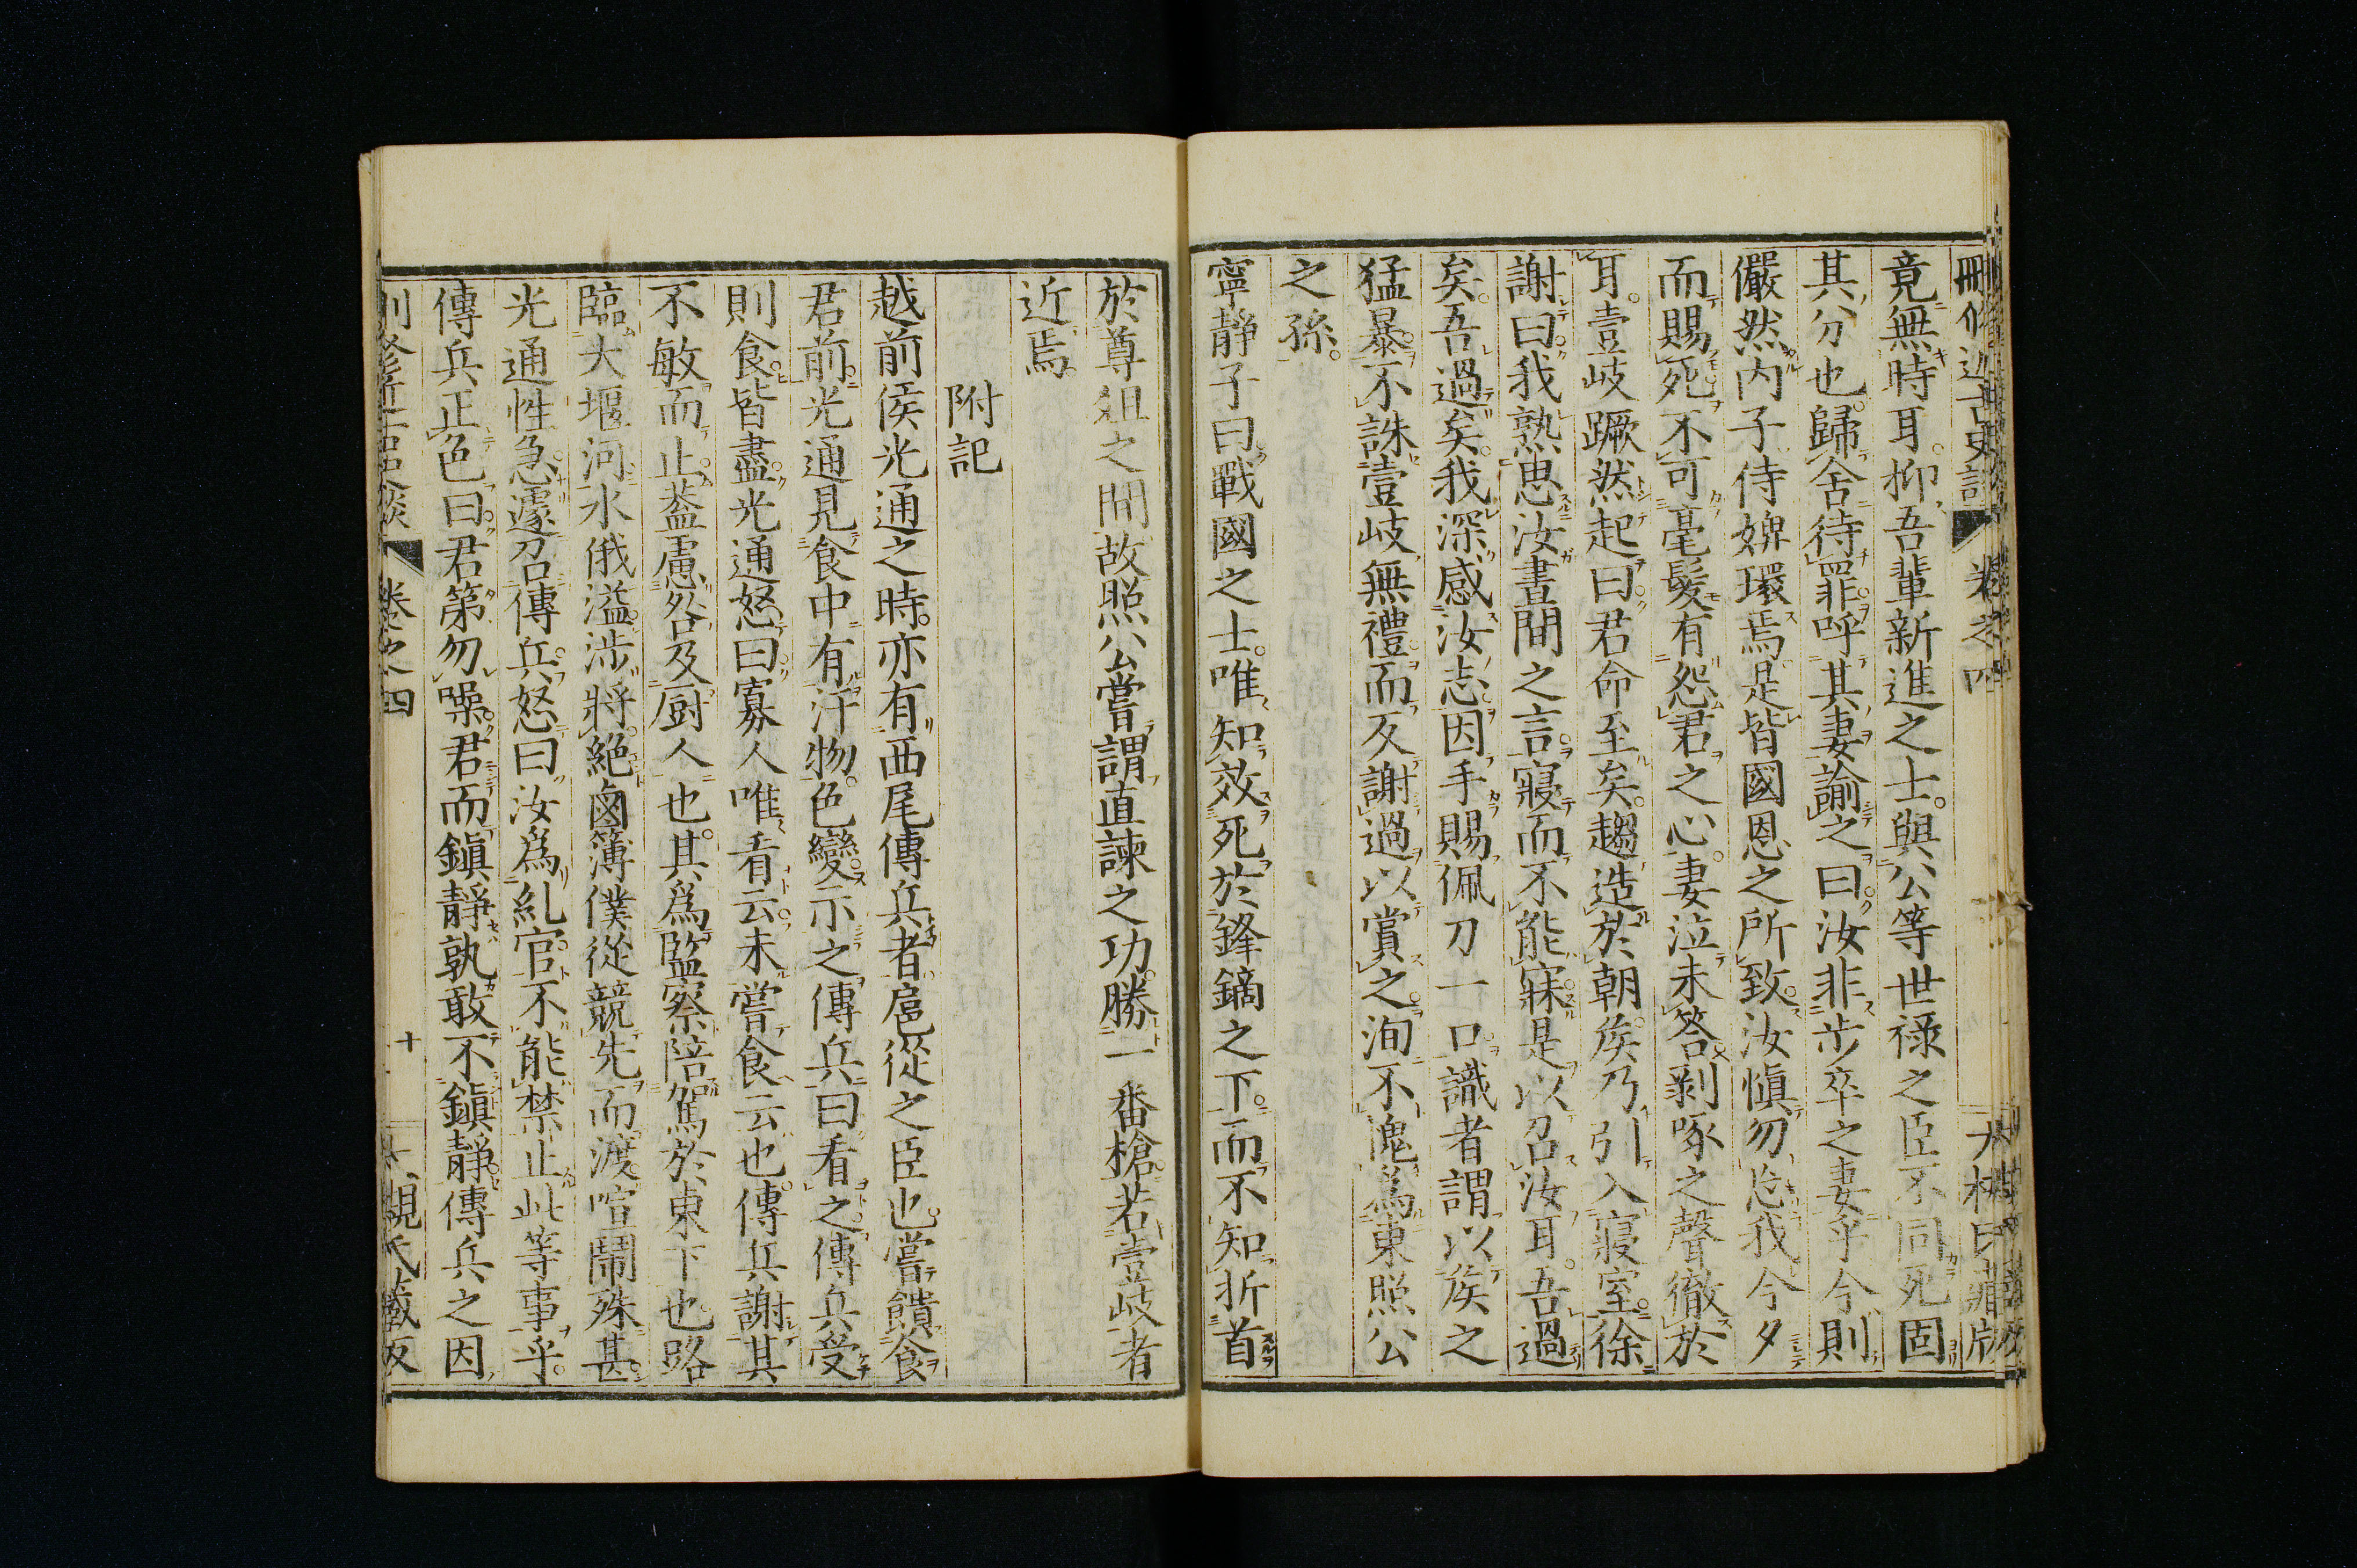 竟無時耳。抑吾輩新進之士。與公等世祿之臣不同死固
其分也。歸舍待罪。呼其妻諭之曰。汝非步卒之妻乎今則
儼然内子侍婢環焉。是皆國恩之所致。汝愼勿忘我今夕
而賜死。不可毫髮有怨君之心。妻泣未答剥啄之聲徹於
耳。壹岐蹶然起曰。君命至矣。趨造於朝矦乃引入寢室。徐
謝曰。我熟思汝晝間之言。寢而不能寐。是以召汝耳。吾過
矣。吾過矣。我深感汝志。因手賜佩刀一口。識者謂以矦之
猛暴。不誅壹岐無禮。而反謝過以賞之。洵不愧爲東照公
之孫。
寧靜子曰。戰國之士。唯知效死於鋒鏑之下。而不知折首
於尊俎之間故照公嘗謂直諫之功。勝一番槍。若壹岐者
近焉。
附記
越前侯光通之時。亦有西尾傳兵者扈從之臣也。嘗饋食
君前。光通見食中有汙物。色變示之傳兵曰。看之。傳兵受
則食。皆盡。光通怒曰。寡人唯看云。未嘗食云也。傳兵謝其
不敏而止。葢慮咎及厨人也。其爲監察陪駕於東下也。路
臨大堰河。水俄溢。涉將絶。鹵簿僕從競先而渡。喧鬧殊甚。
光通性急。遽召傳兵。怒曰。汝爲糺官。不能禁止此等事乎。
傳兵正色曰。君第勿噪。君而鎭靜孰敢不鎭靜。傳兵之因
卷之四
十